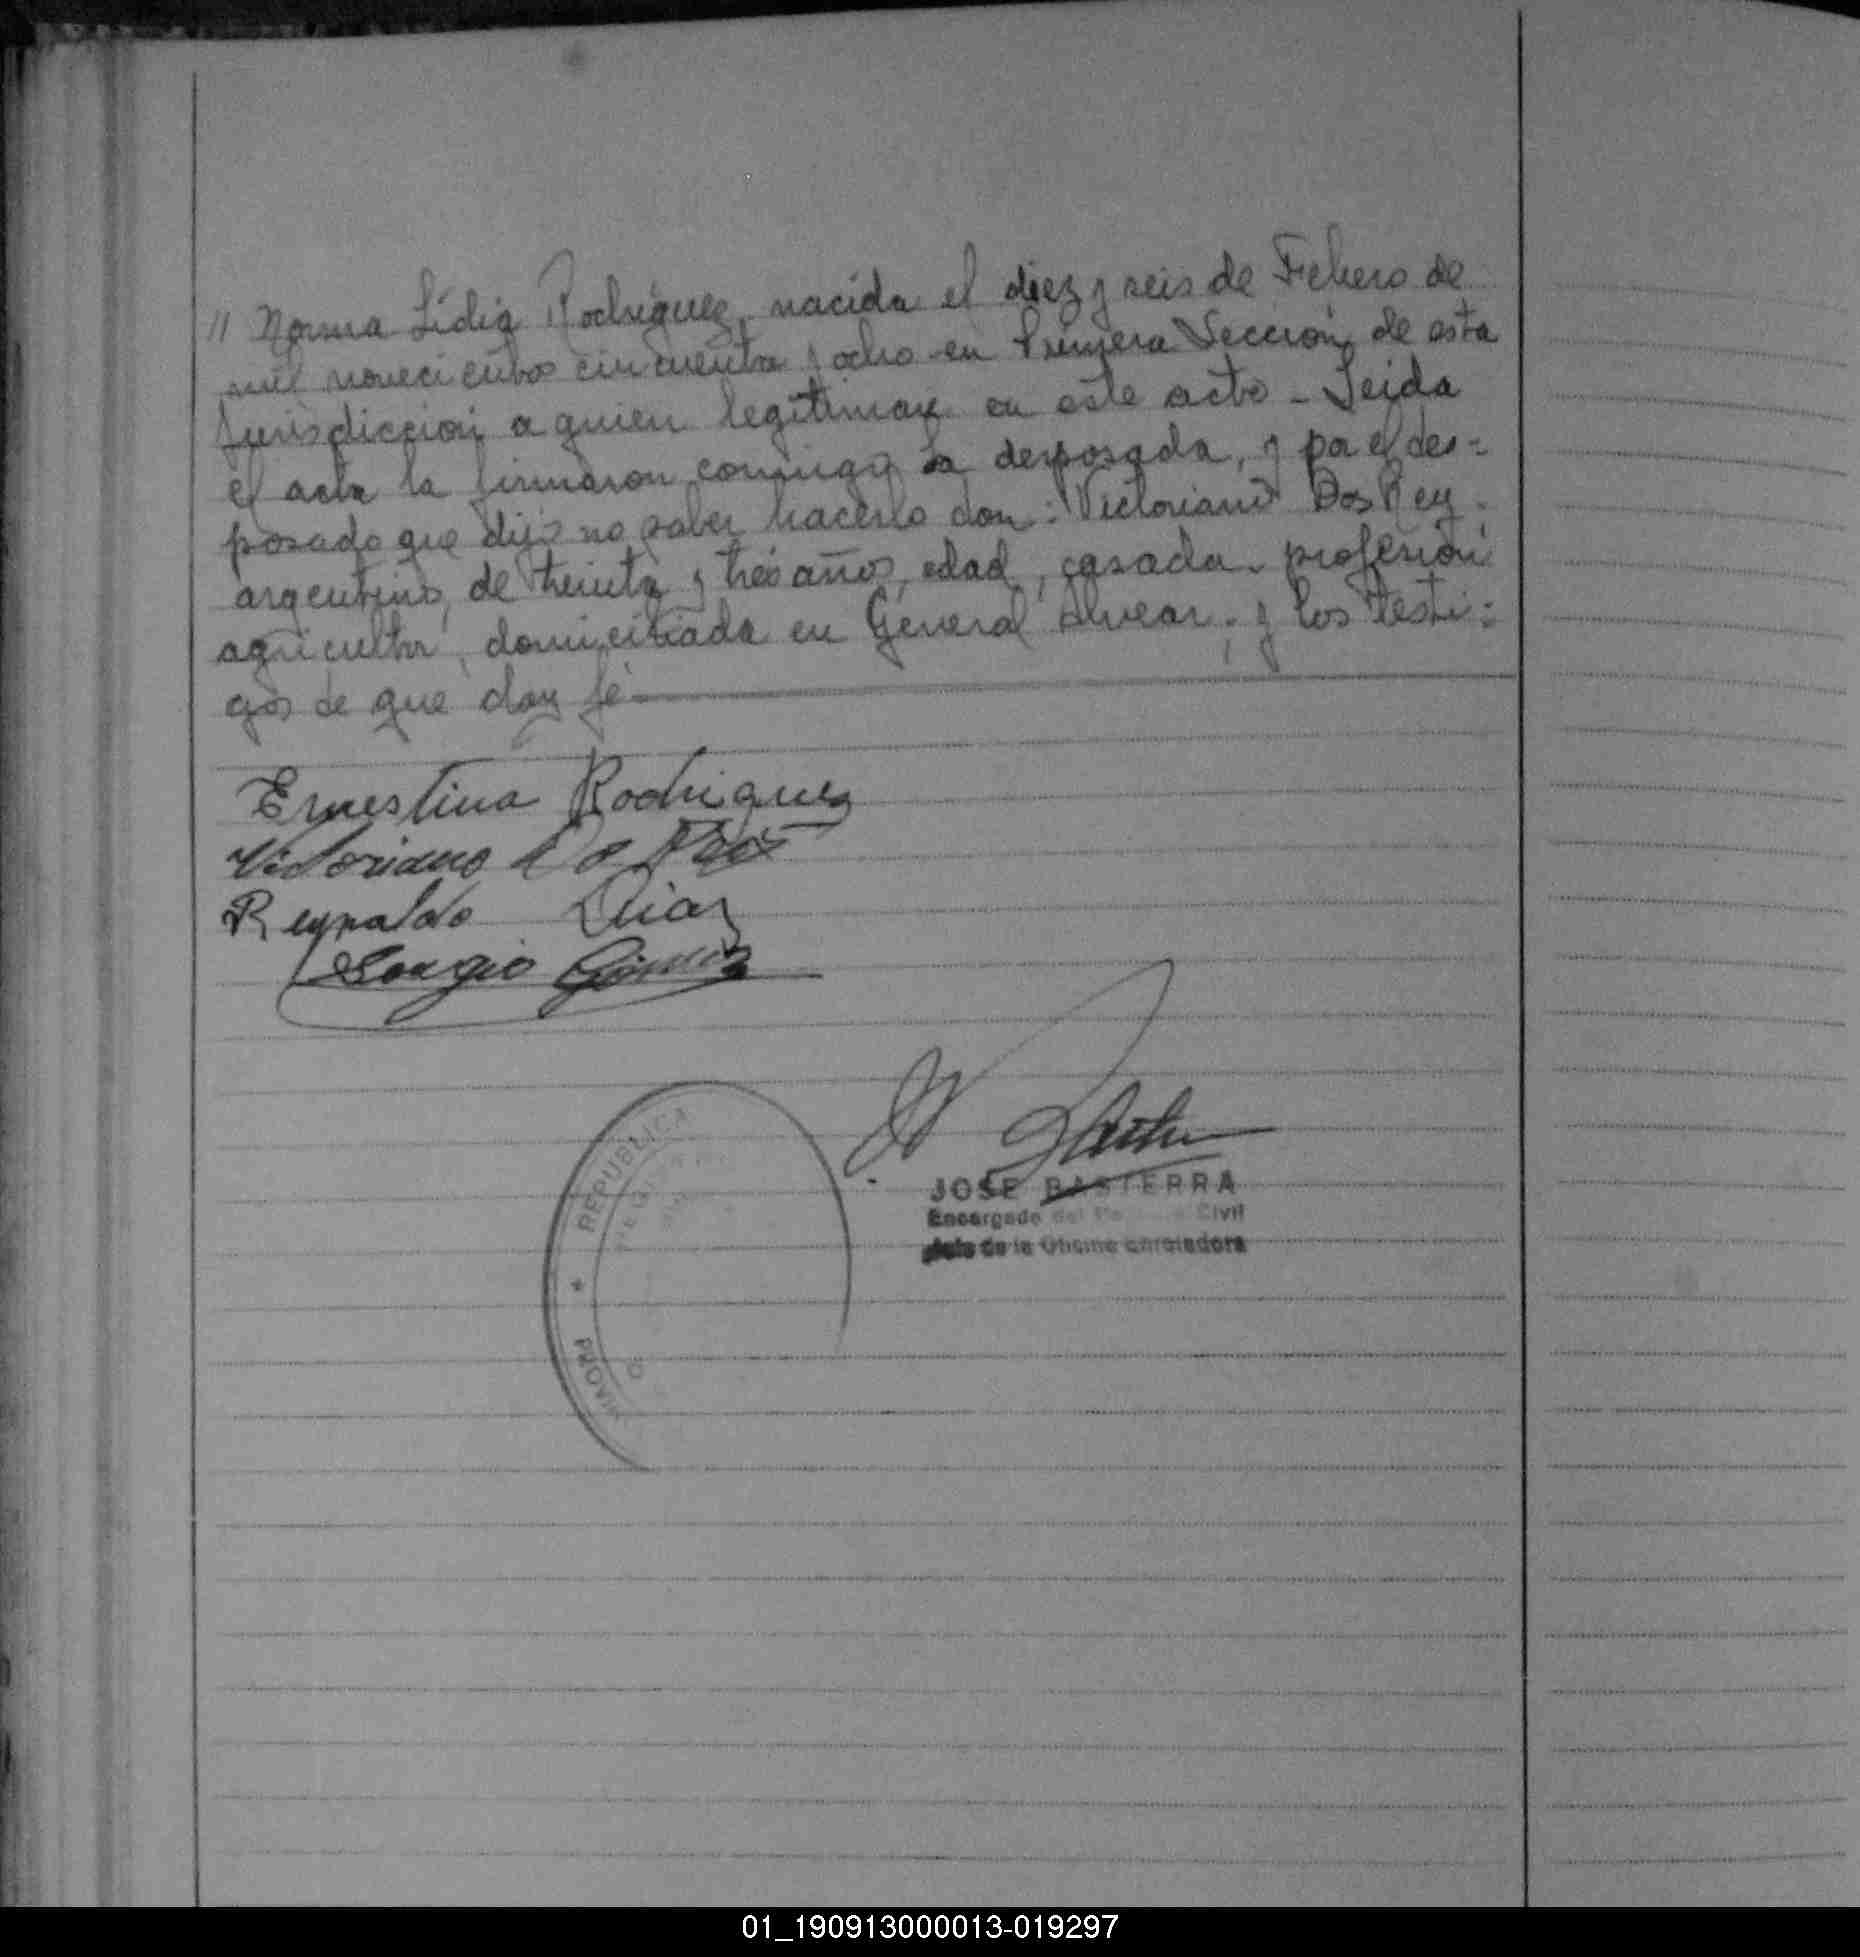 // Norma Lidia Rodriguez, nacida el diez y seis de Febrero de
mil novecientos cincuenta y ocho en Primera Sección de esta
Jurisdicción a quien legitiman en este acto - Leida
el acta la firmaron conmigo la desposada, y por el des=
posado que dijo no saber hacerlo don: Victoriano Dos Rey.
argentino, de treinta y tres años, edad, casada, profesión
agricultor, domiciliada en General Alvear; y los testi=
gos de que doy fé
Ernestina Rodriguez
Victoriano Do Rei
Reynaldo Diaz
Sergio Gómez
REPUBLICA
PROVIN
JOSE BASTERRA
Encargado del Civil
Jefe de la Oficina Enroladora
01_190913000013-019297